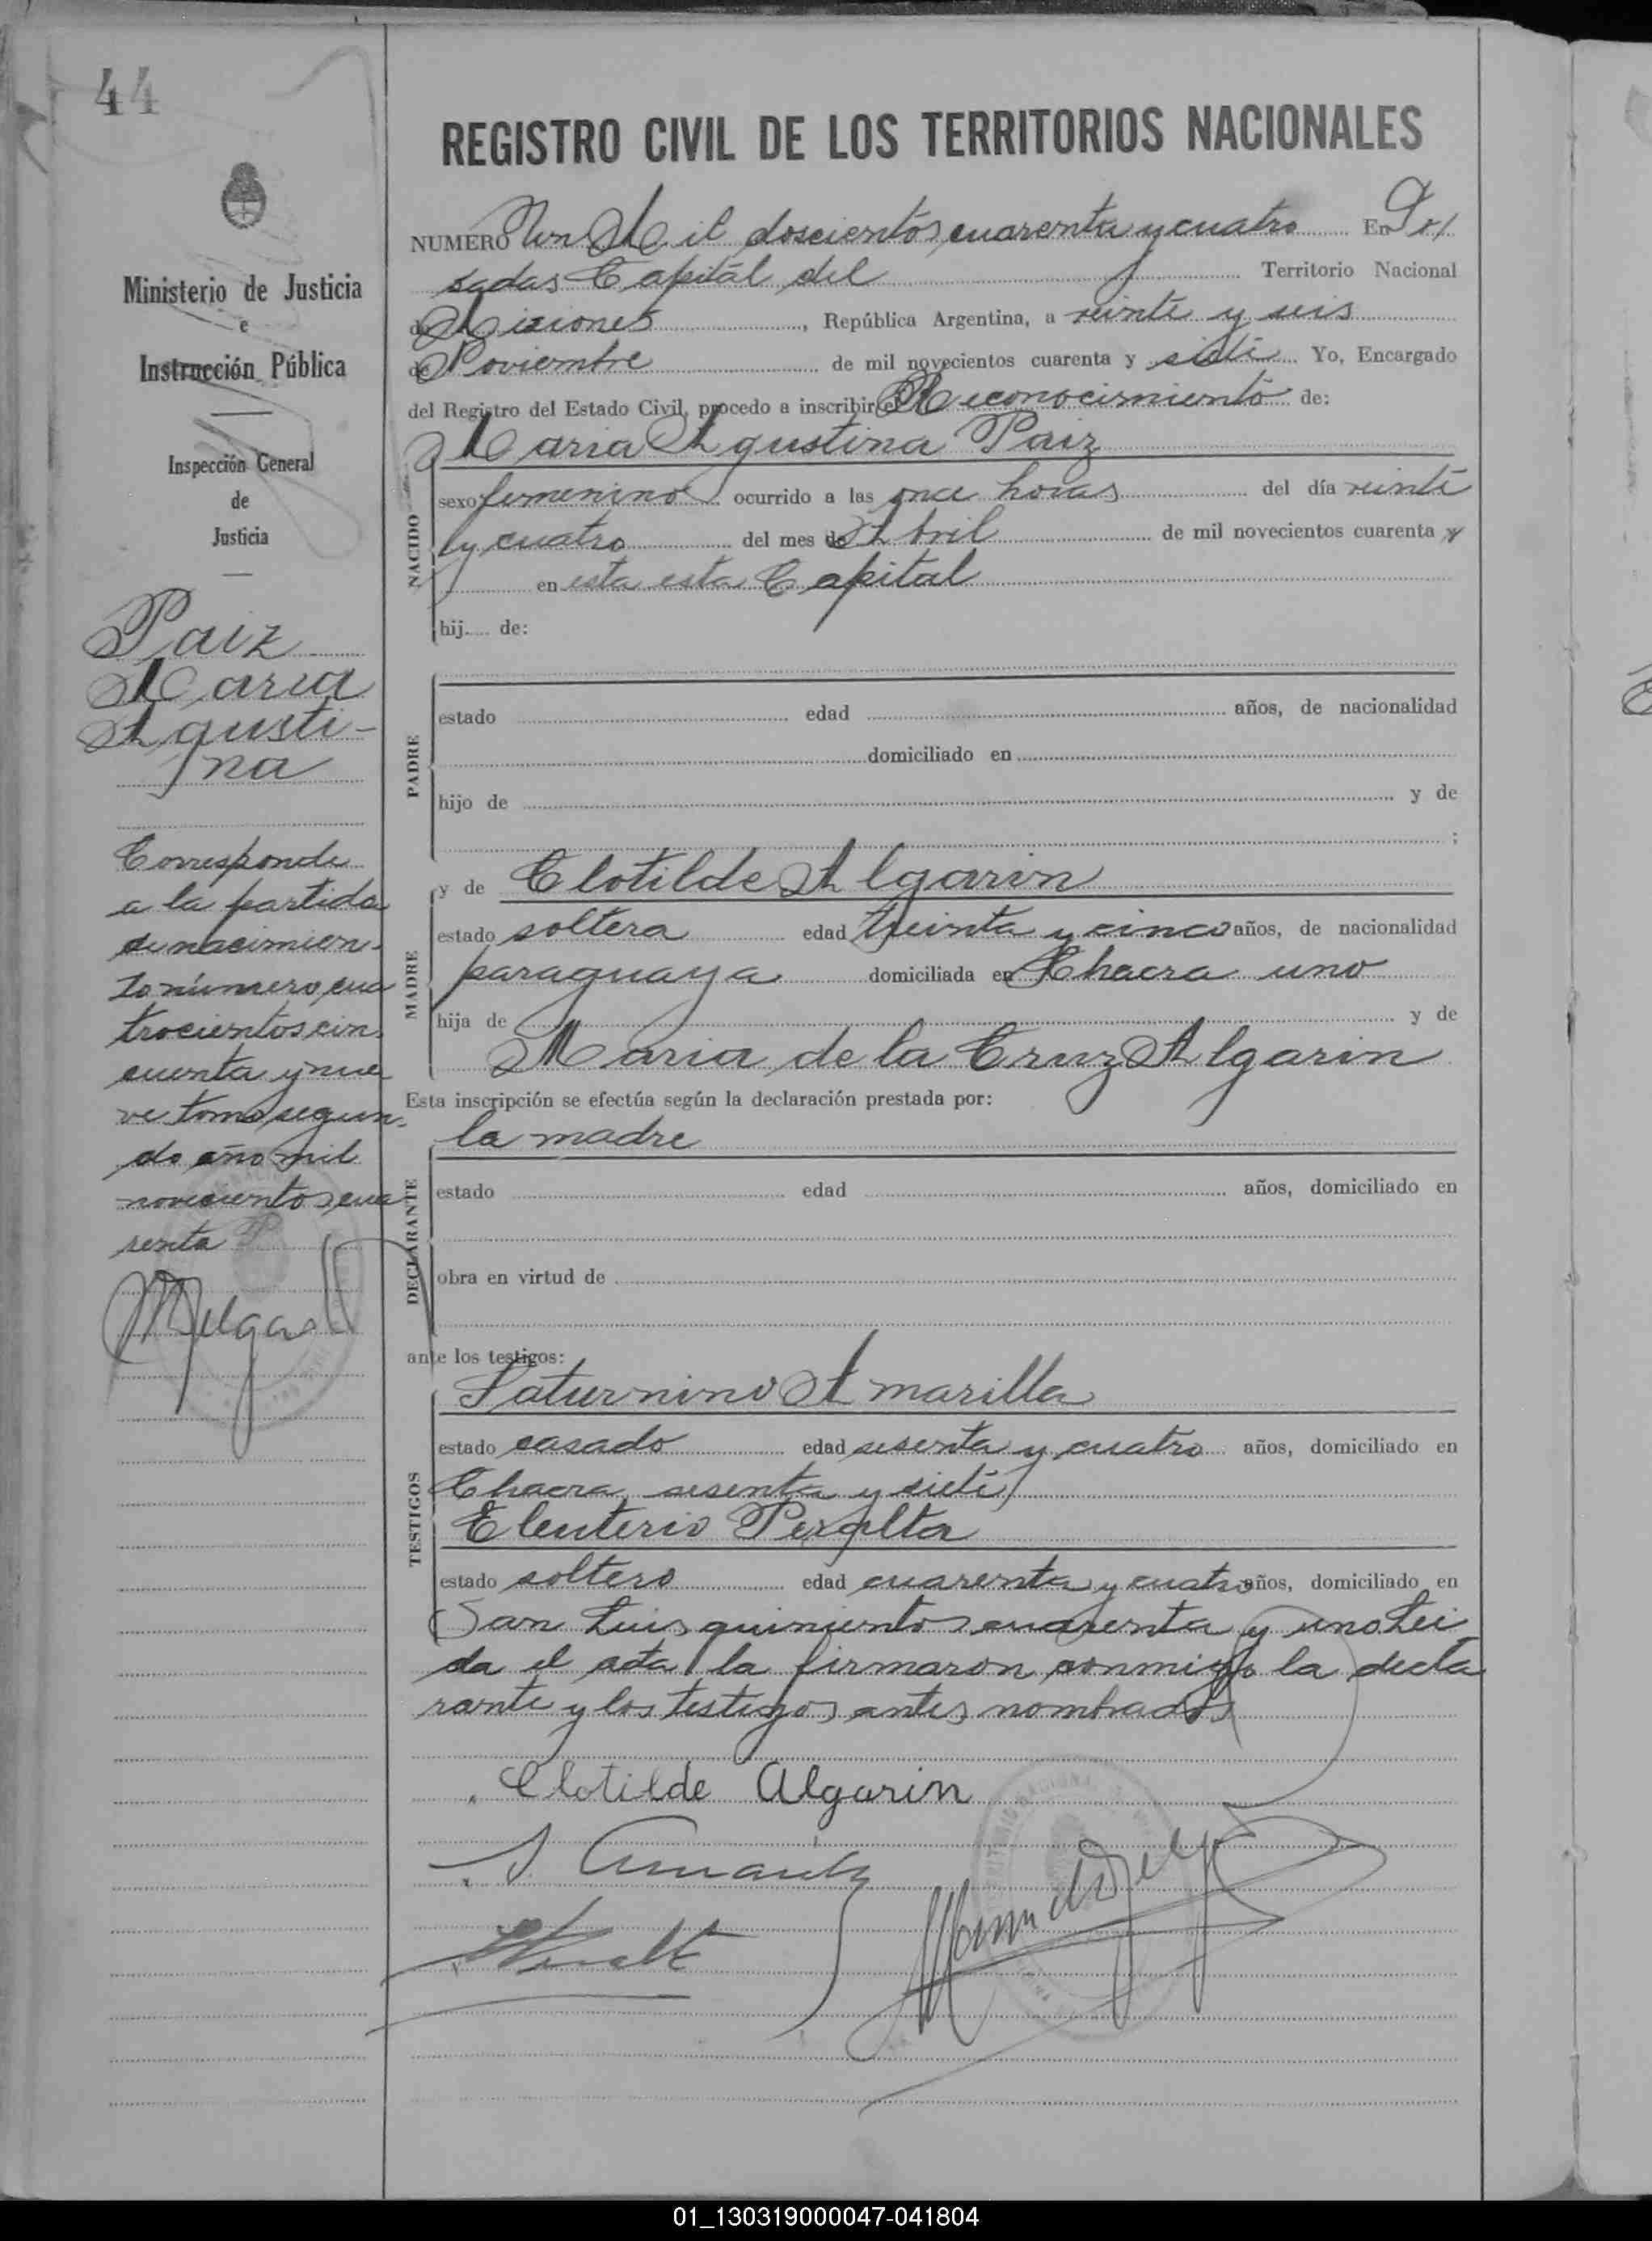 44
Ministerio de Justicia
e
Instrucción Pública
Inspección General
de
Justicia
Paiz
Maria
Agusti-
na
Corresponde
a la partida
de nacimien-
to número cua
trocientos cin
cuenta y nue
ve tomo segun-
do año mil
novecientos cua
renta
REGISTRO CIVIL DE LOS TERRITORIOS NACIONALES
NUMERO Un Mil doscientos cuarenta y cuatro En Po/
sadas Capital del Territorio Nacional
de Misiones, República Argentina, a veinte y seis
de Noviembre de mil novecientos cuarenta y siete Yo, Encargado
del Registro del Estado Civil, procedo a inscribir el Reconocimiento de:
Maria Agustina Paiz
NACIDO
sexo femenino ocurrido a las once horas del día veinte
y cuatro del mes de Abril de mil novecientos cuarenta y
en esta esta Capital
hij.... de:
PADRE
estado edad años, de nacionalidad
domiciliado en
hijo de y de
;
MADRE
y de Clotilde Algarin
estado soltera edad treinta y cinco años, de nacionalidad
paraguaya domiciliada en Chacra uno
hija de y de
Maria de la Cruz Algarin
Esta inscripción se efectúa según la declaración prestada por:
la madre
DECLARANTE
estado edad años, domiciliado en
obra en virtud de
ante los testigos:
Saturnino Amarilla
TESTIGOS
estado casado edad sesenta y cuatro años, domiciliado en
Chacra sesenta y siete
Eleuterio Peralta
estado soltero edad cuarenta y cuatro años, domiciliado en
San Luis quinientos cuarenta y uno Lei
da el acta la firmaron conmigo la decla
rante y los testigos antes nombrados
Clotilde Algarin
01_130319000047-041804